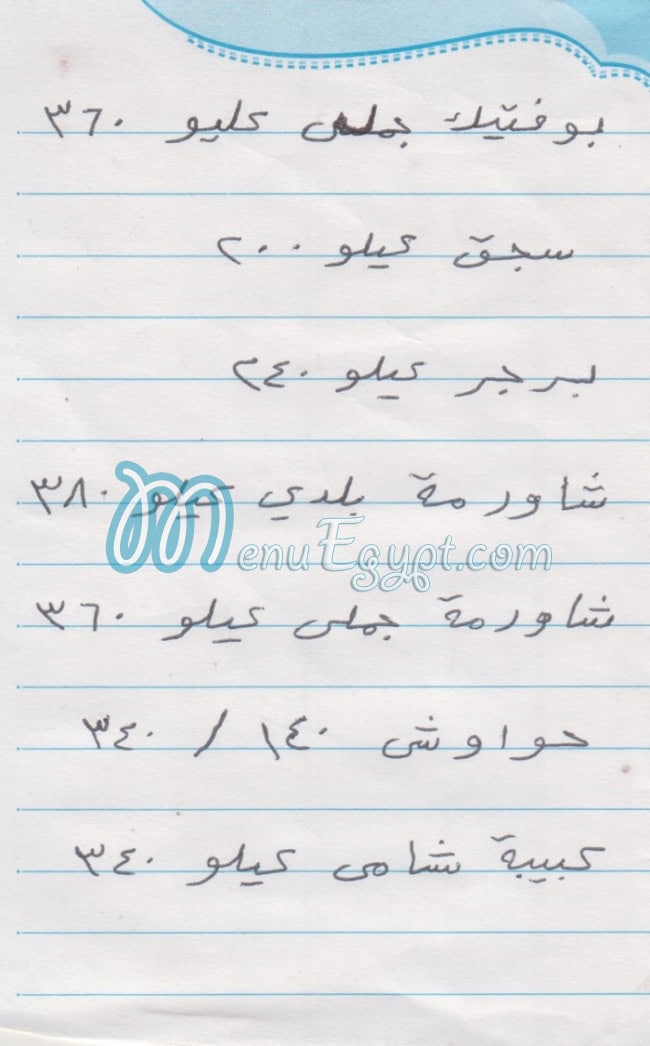 بوفتيك جملى كليو ٣٦٠
سجق كيلو ٢٠٠
برجر كيلو ٢٤٠
شاورمة بلدي كيلو ٣٨٠
MenuEgypt.com
شاورمة جملى كيلو ٣٦٠
حواوشى ١٤٠ / ٣٤٠
كبيبة شامى كيلو ٣٤٠